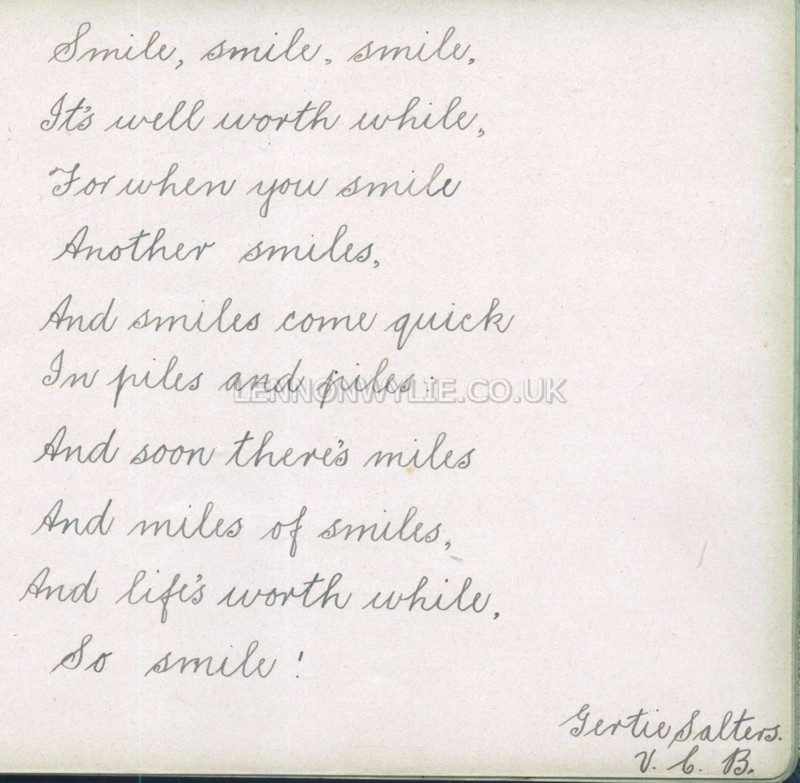 Smile, smile, smile,
It's well worth while,
For when you smile
Another smiles,
And smiles come quick
In piles and piles.
LENNONWYLIE.CO.UK
And soon there's miles
And miles of smiles,
And life's worth while,
So smile!
Gertie Salters.
V. C. B.